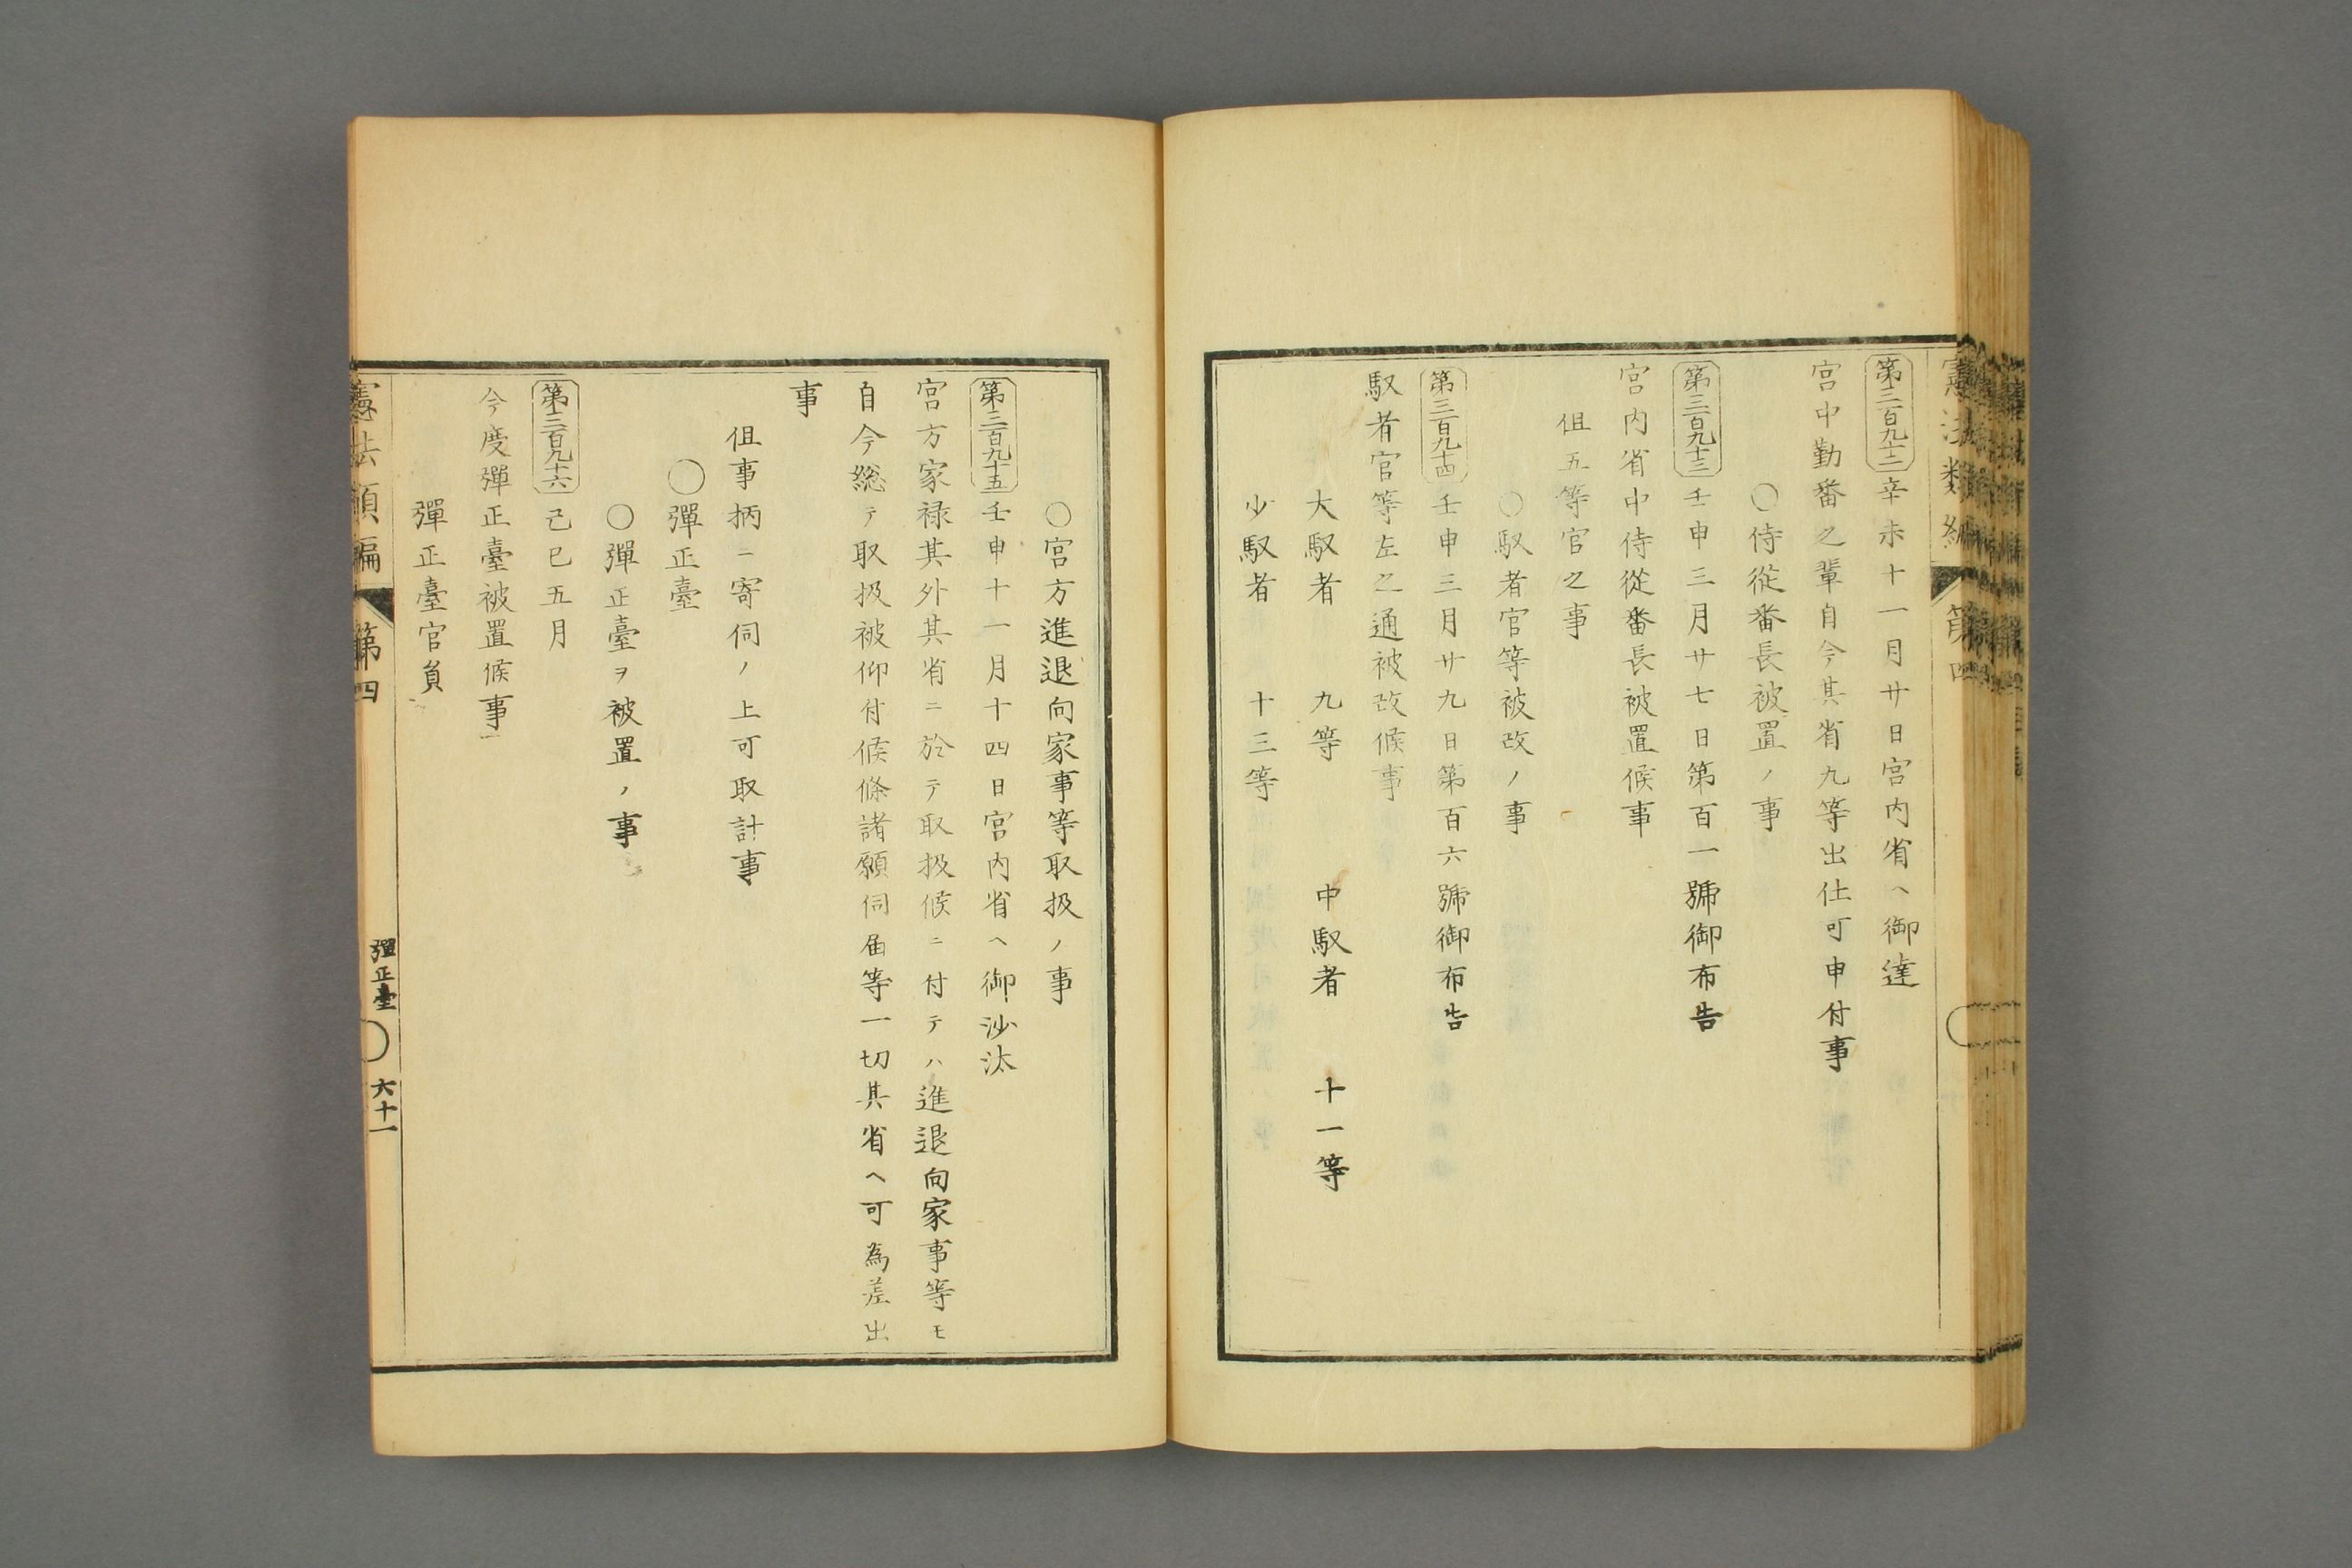 第三百九十二 辛未十一月廿日宮内省ヘ御達
宮中勤番之輩自今其省九等出仕可申付事
○侍從番長被置ノ事
第三百九十三 壬申三月廿七日第百一號御布告
宮内省中侍從番長被置候事
但五等官之事
○馭者官等被改ノ事
第三百九十四 壬申三月廿九日第百六號御布告
馭者官等左之通被改候事
大馭者 九等 中馭者 十一等
少馭者 十三等
○宮方進退向家事等取扱ノ事
第三百九十五 壬申十一月十四日宮内省ヘ御沙汰
宮方家禄其外其省ニ於テ取扱候ニ付テハ進退向家事等モ
自今総テ取扱被仰付候條諸願伺届等一切其省ヘ可為差出
事
但事柄ニ寄伺ノ上可取計事
○彈正臺
○彈正臺ヲ被置ノ事
第三百九十六 己巳五月
今度彈正臺被置候事
彈正臺官負
憲法類編 第四 彈正臺 六十一